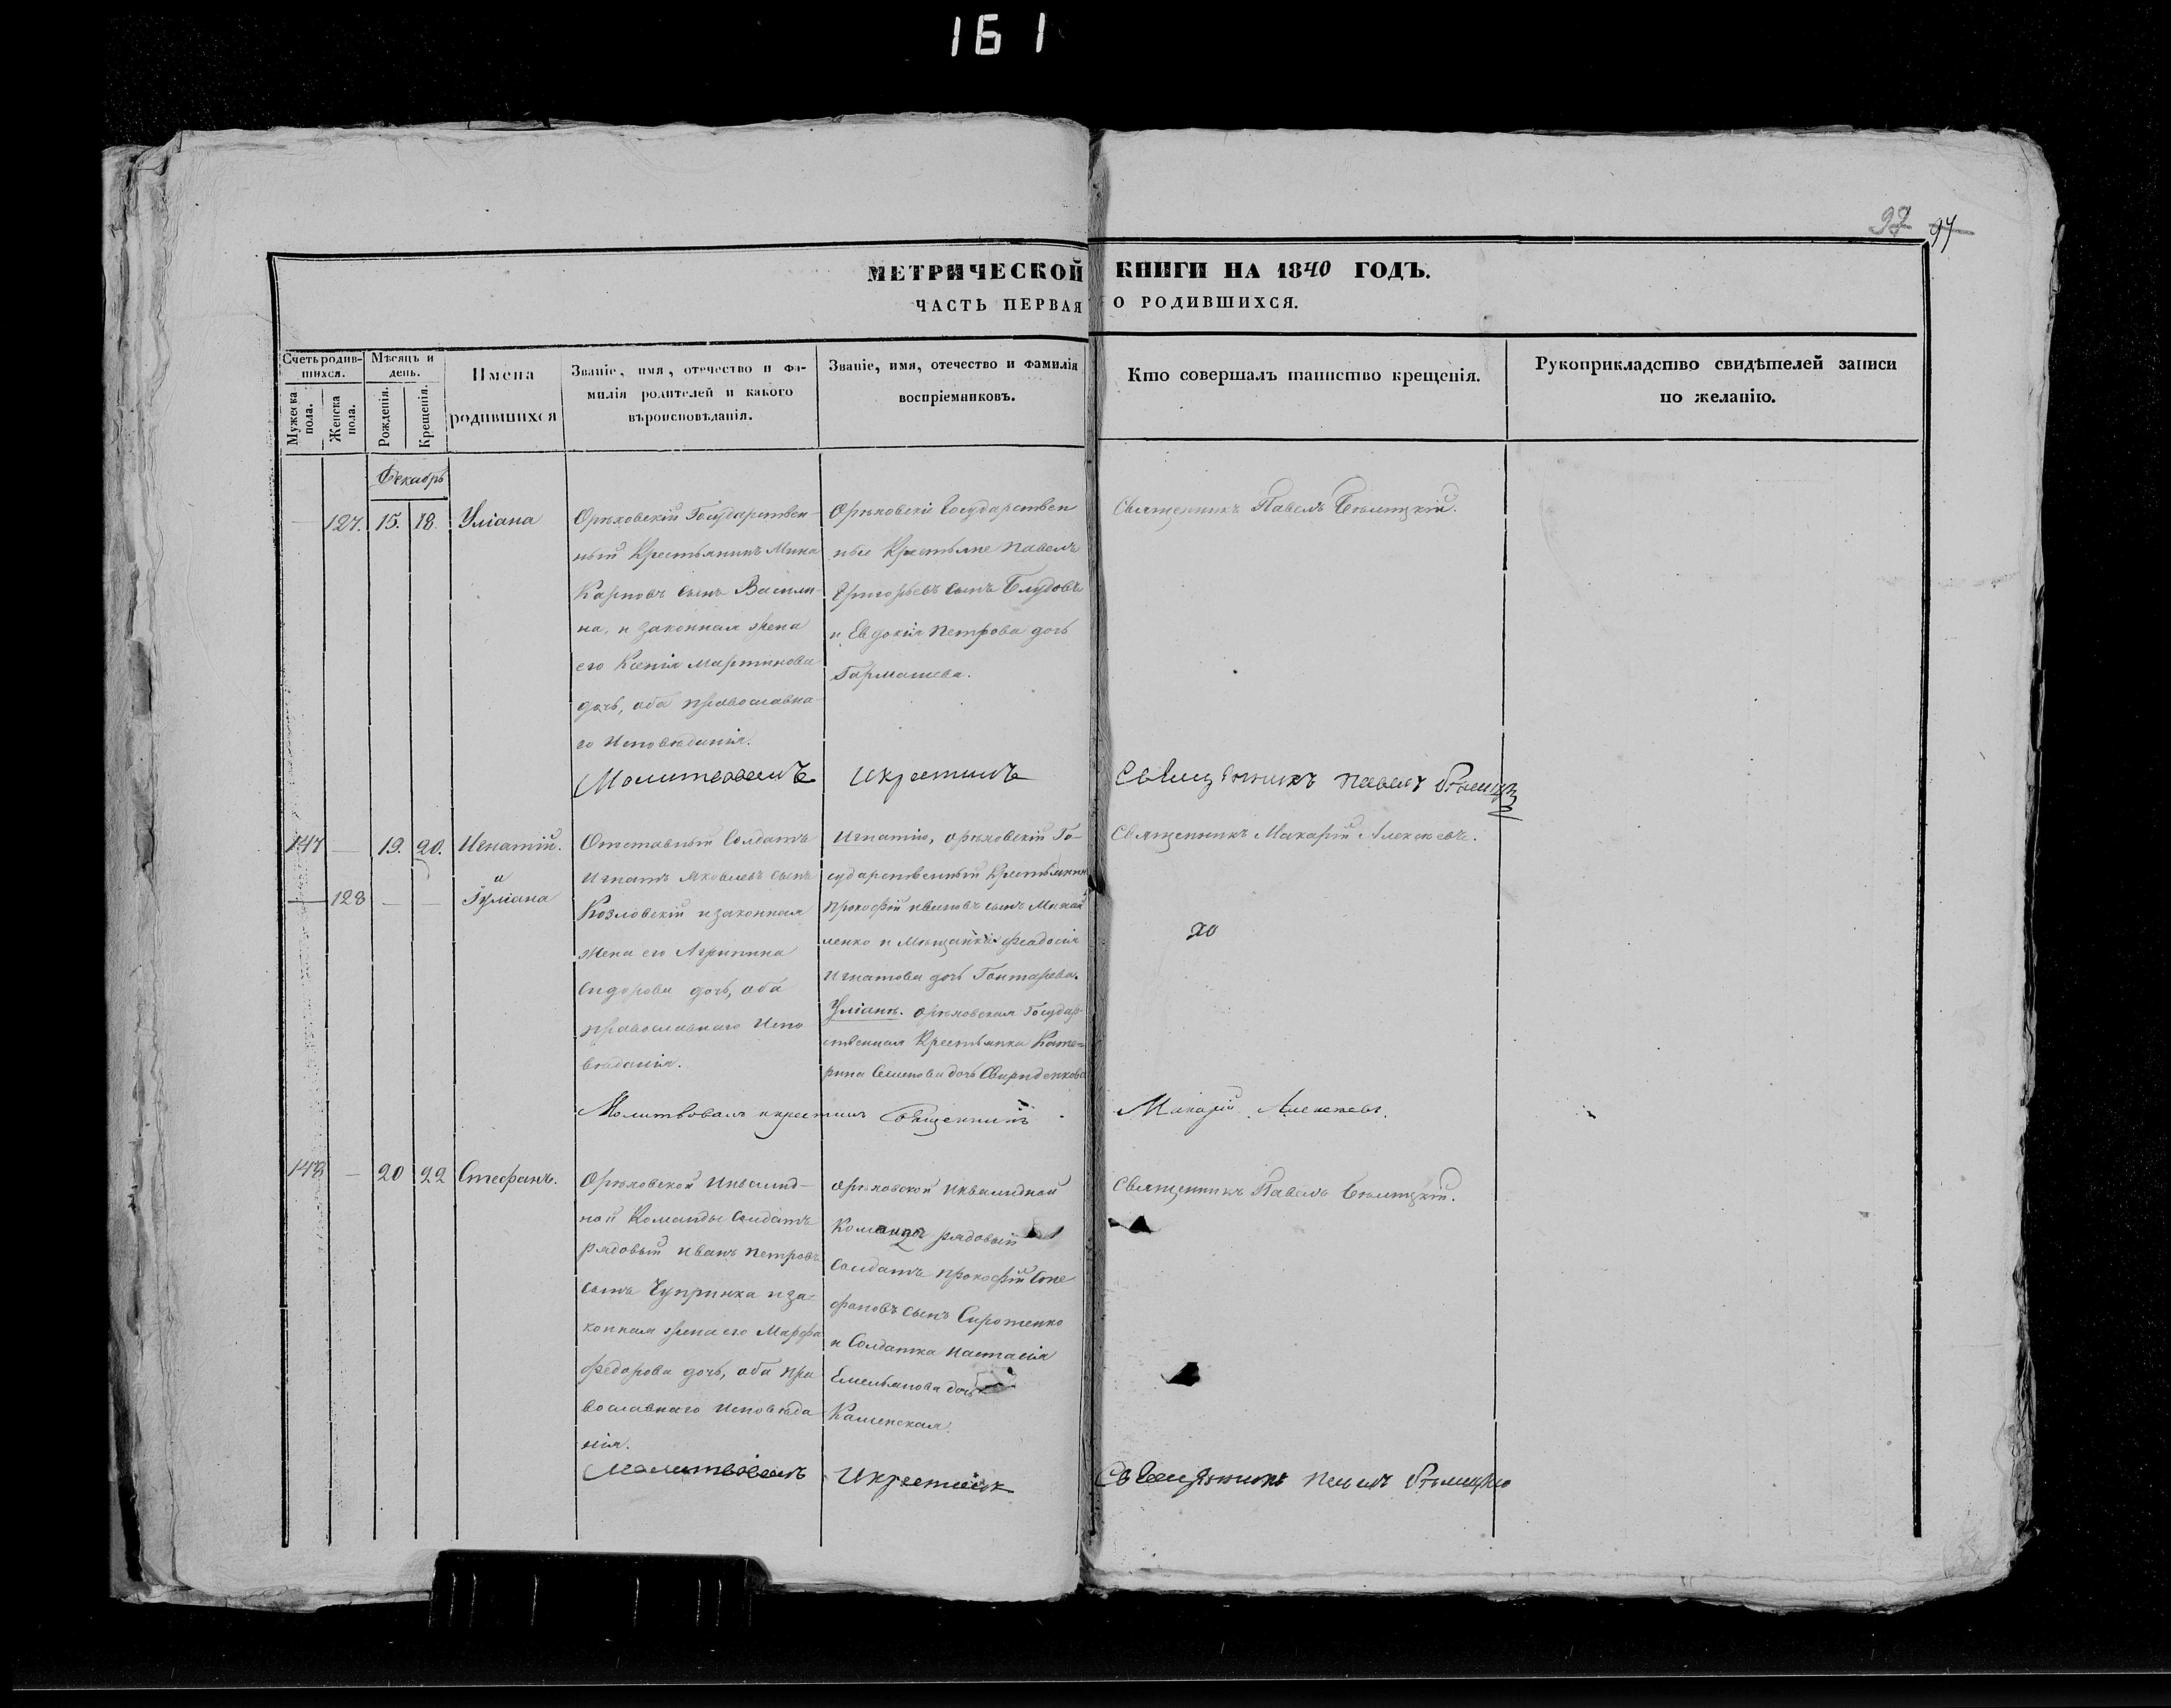 161
97
МЕТРИЧЕСКОЙ КНИГИ НА 1840 ГОДЪ.
ЧАСТЬ ПЕРВАЯ О РОДИВШИХСЯ.
Счетъ родив-
шихся.
Мужеска
пола.
Женска
пола.
Мѣсяцъ и
день.
Рожденія.
Крещенія.
Имена
родившихся
Званіе, имя, отечество и фа-
милія родителей и какого
вѣроисповѣданія.
Званіе, имя, отечество и фамилія
воспріемниковъ.
Кто совершалъ таинство крещенія.
Рукоприкладство свидѣтелей записи
по желанію.
Декабрь
127. 15. 18. Уліана
Орѣховскій Государствен-
ный Крестьянинъ Мина
Карповъ сынъ Васили-
на, и законная жена
его Ксенія Мартинова
дочь, оба православна
го Исповѣданія.
Орѣховскіе Государствен
ные Крестьяне Павелъ
Григорьевъ сынъ Блудовъ
и Евдокія Петрова дочь
Гармашева.
Священникъ Павелъ Бѣлицкій.
Молитвовалъ
и крестилъ
Священникъ Павелъ Бѣлицкій
147 — 19. 20. Игнатій.
и
— 128 — — Іуліана
Отставный Солдатъ
Игнатъ Яковлевъ сынъ
Козловскій и законная
жена его Агрипина
Сидорова дочь, оба
православнаго Испо
вѣданія.
Игнатію, орѣховскій Го-
сударственный Крестьянин
Прокофій Ивановъ сынъ Михай
ленко и Мѣщанка Феодосія
Игнатова дочь Гонтарева.
Уліанѣ. орѣховская Государ-
ственная Крестьянка Кате-
рина Семенова дочь Свириденкова
Священникъ Макарій Алексѣевъ.
Молитвовалъ и крестилъ Священникъ Макарій Алексѣевъ.
148 — 20 22 Стефанъ.
Орѣховской Инвалид-
ной Команды Солдатъ
рядовый Иванъ Петровъ
сынъ Чупринка и за-
конная жена его Марфа
Федорова дочь, оба пра
вославнаго Исповѣда
нія.
орѣховской Инвалидной
Команды рядовый
Солдатъ Прокофій Сте
фановъ сынъ Сиротенко
и Солдатка Настасія
Емельянова дочь
Каменская.
Священникъ Павелъ Бѣлицкій.
Молитвовалъ
И крестилъ
Священникъ Павелъ Бѣлицкій